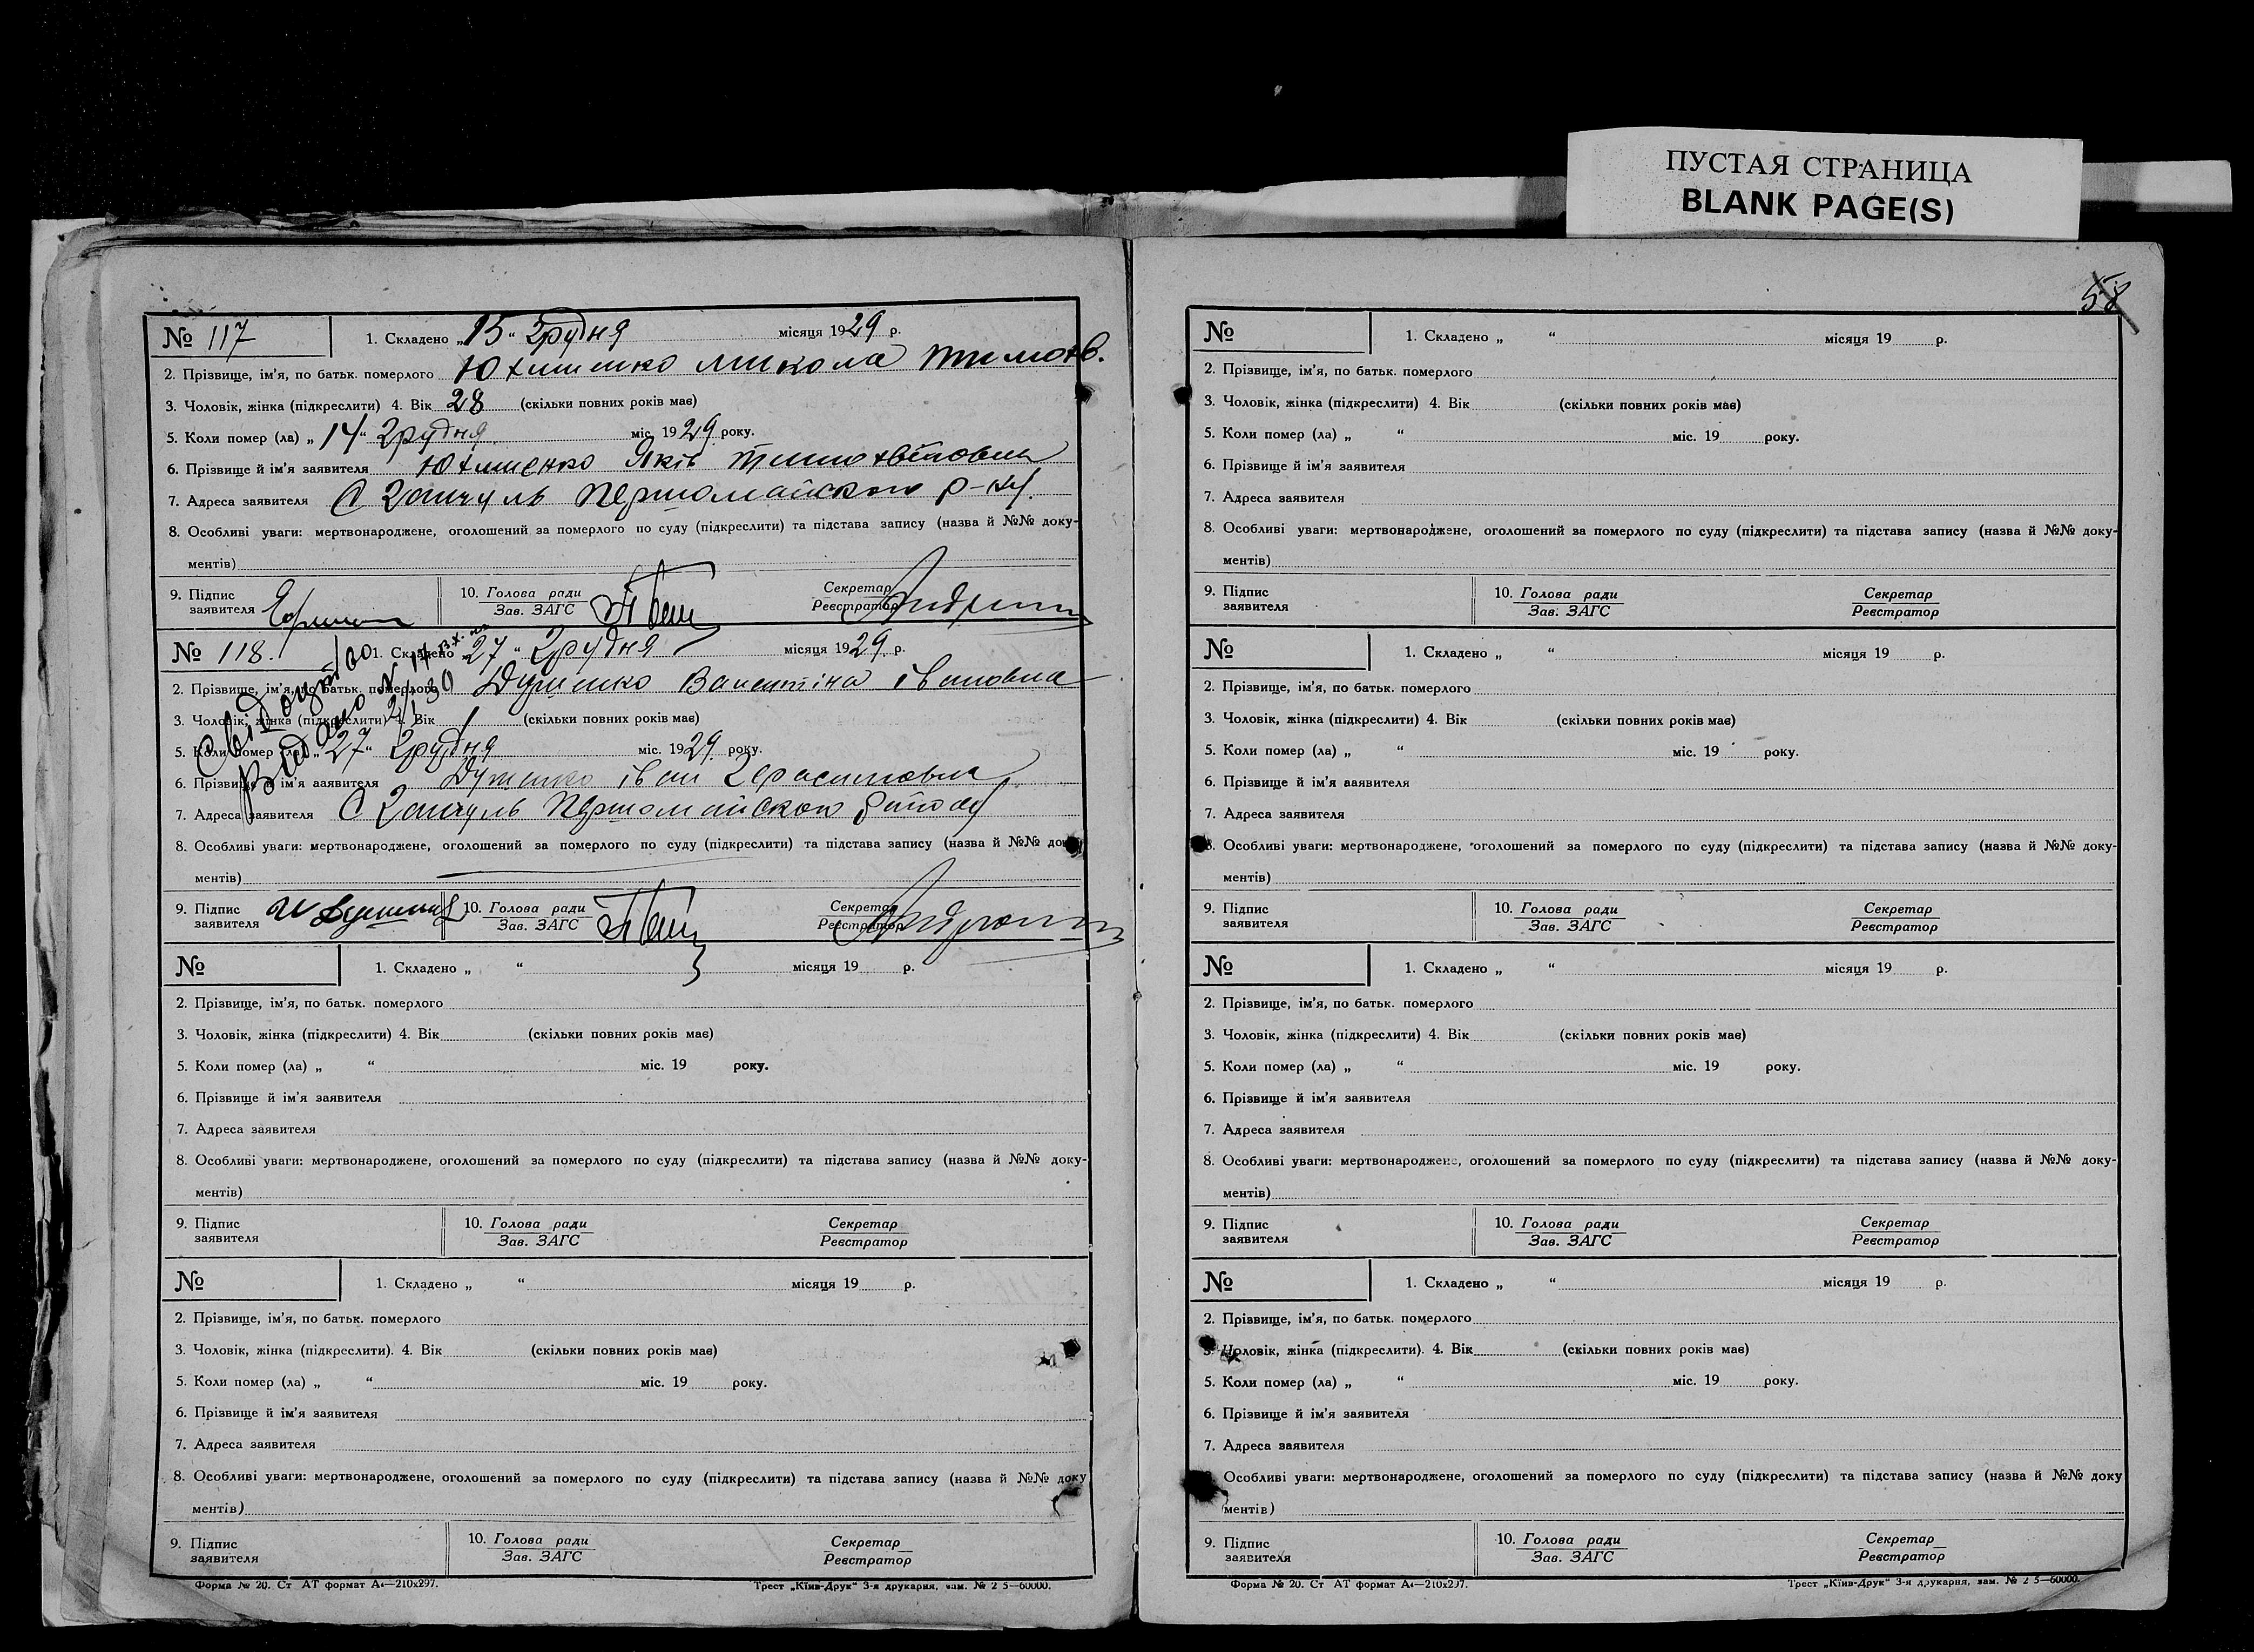 ПУСТАЯ СТРАНИЦА
BLANK PAGE(S)
№ 117
1. Складено „15“ грудня місяця 1929 р.
2. Прізвище, ім'я, по батьк. померлого Юхименко Микола Тимофв.
3. Чоловік, жінка (підкреслити) 4. Вік 28 (скільки повних років має)
5. Коли помер (ла) „14“ грудня міс. 1929 року.
6. Прізвище й ім'я заявителя Юхименко Яків
7. Адреса заявителя С Первомайского р-ну.
8. Особливі уваги: мертвонароджене, оголошений за померлого по суду (підкреслити) та підстава запису (назва й №№ доку-
ментів)
9. Підпис заявителя
10. Голова ради
Зав. ЗАГС
Секретар
Реєстратор
№ 118.
1. Складено „27“ грудня місяця 1929 р.
2. Прізвище, ім'я, по батьк. померлого Душенко Валентіна івановна
3. Чоловік, жінка (підкреслити) 4. Вік 1 (скільки повних років має)
5. Коли помер (ла) „27“ грудня міс. 1929 року.
6. Прізвище й ім'я заявителя Душенко іван
7. Адреса заявителя С Первомайского
Видано №
8. Особливі уваги: мертвонароджене, оголошений за померлого по суду (підкреслити) та підстава запису (назва й №№ доку-
ментів)
9. Підпис заявителя
10. Голова ради
Зав. ЗАГС
Секретар
Реєстратор
№
1. Складено „ “ місяця 19 р.
2. Прізвище, ім'я, по батьк. померлого
3. Чоловік, жінка (підкреслити) 4. Вік (скільки повних років має)
5. Коли помер (ла) „ “ міс. 19 року.
6. Прізвище й ім'я заявителя
7. Адреса заявителя
8. Особливі уваги: мертвонароджене, оголошений за померлого по суду (підкреслити) та підстава запису (назва й №№ доку-
ментів)
9. Підпис заявителя
10. Голова ради
Зав. ЗАГС
Секретар
Реєстратор
№
1. Складено „ “ місяця 19 р.
2. Прізвище, ім'я, по батьк. померлого
3. Чоловік, жінка (підкреслити). 4. Вік (скільки повних років має)
5. Коли помер (ла) „ “ міс. 19 року.
6. Прізвище й ім'я заявителя
7. Адреса заявителя
8. Особливі уваги: мертвонароджене, оголошений за померлого по суду (підкреслити) та підстава запису (назва й №№ доку
ментів)
9. Підпис заявителя
10. Голова ради
Зав. ЗАГС
Секретар
Реєстратор
Форма № 20. Ст АТ формат А4—210х297.
Трест „Київ-Друк“ 3-я друкарня, зам. № 2 5—60000.
58
№
1. Складено „ “ місяця 19 р.
2. Прізвище, ім'я, по батьк. померлого
3. Чоловік, жінка (підкреслити) 4. Вік (скільки повних років має)
5. Коли помер (ла) „ “ міс. 19 року.
6. Прізвище й ім'я заявителя
7. Адреса заявителя
8. Особливі уваги: мертвонароджене, оголошений за померлого по суду (підкреслити) та підстава запису (назва й №№ доку-
ментів)
9. Підпис заявителя
10. Голова ради
Зав. ЗАГС
Секретар
Реєстратор
№
1. Складено „ “ місяця 19 р.
2. Прізвище, ім'я, по батьк. померлого
3. Чоловік, жінка (підкреслити) 4. Вік (скільки повних років має)
5. Коли помер (ла) „ “ міс. 19 року.
6. Прізвище й ім'я заявителя
7. Адреса заявителя
8. Особливі уваги: мертвонароджене, оголошений за померлого по суду (підкреслити) та підстава запису (назва й №№ доку-
ментів)
9. Підпис заявителя
10. Голова ради
Зав. ЗАГС
Секретар
Реєстратор
№
1. Складено „ “ місяця 19 р.
2. Прізвище, ім'я, по батьк. померлого
3. Чоловік, жінка (підкреслити) 4. Вік (скільки повних років має)
5. Коли помер (ла) „ “ міс. 19 року.
6. Прізвище й ім'я заявителя
7. Адреса заявителя
8. Особливі уваги: мертвонароджене, оголошений за померлого по суду (підкреслити) та підстава запису (назва й №№ доку-
ментів)
9. Підпис заявителя
10. Голова ради
Зав. ЗАГС
Секретар
Реєстратор
№
1. Складено „ “ місяця 19 р.
2. Прізвище, ім'я, по батьк. померлого
3. Чоловік, жінка (підкреслити). 4. Вік (скільки повних років має)
5. Коли помер (ла) „ “ міс. 19 року.
6. Прізвище й ім'я заявителя
7. Адреса заявителя
Особливі уваги: мертвонароджене, оголошений за померлого по суду (підкреслити) та підстава запису (назва й №№ доку
ментів)
9. Підпис заявителя
10. Голова ради
Зав. ЗАГС
Секретар
Реєстратор
Форма № 20. Ст АТ формат А4—210х297.
Трест „Київ-Друк“ 3-я друкарня, зам. № 2 5—60000.